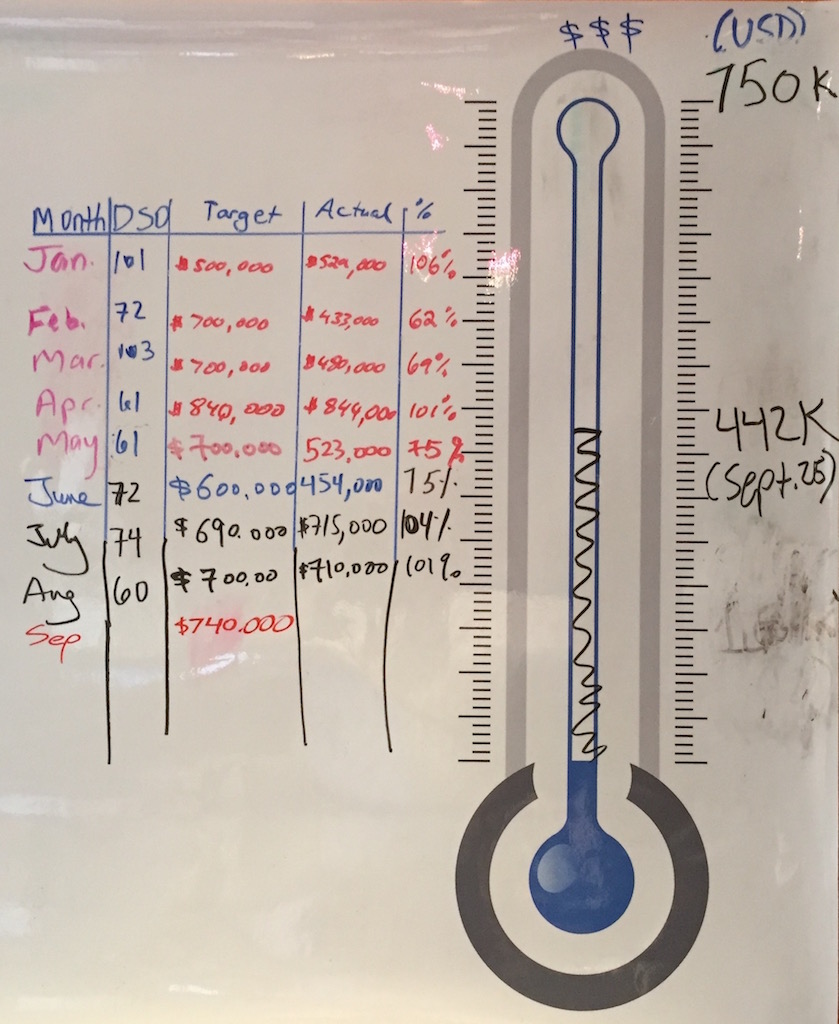 $ $ $ (USD)
750K
Month DSO Target Actual %
Jan. 101 $500,000 $529,000 106%
Feb. 72 $700,000 $433,000 62%
Mar. 103 $700,000 $480,000 69%
Apr. 61 $840,000 $844,000 101%
May 61 $700.000 523,000 75%
June 72 $600.000 454,000 75%
July 74 $690.000 $715,000 104%
Aug 60 $700.00 $710,000 101%
Sep $740.000
442K
(Sept.25)